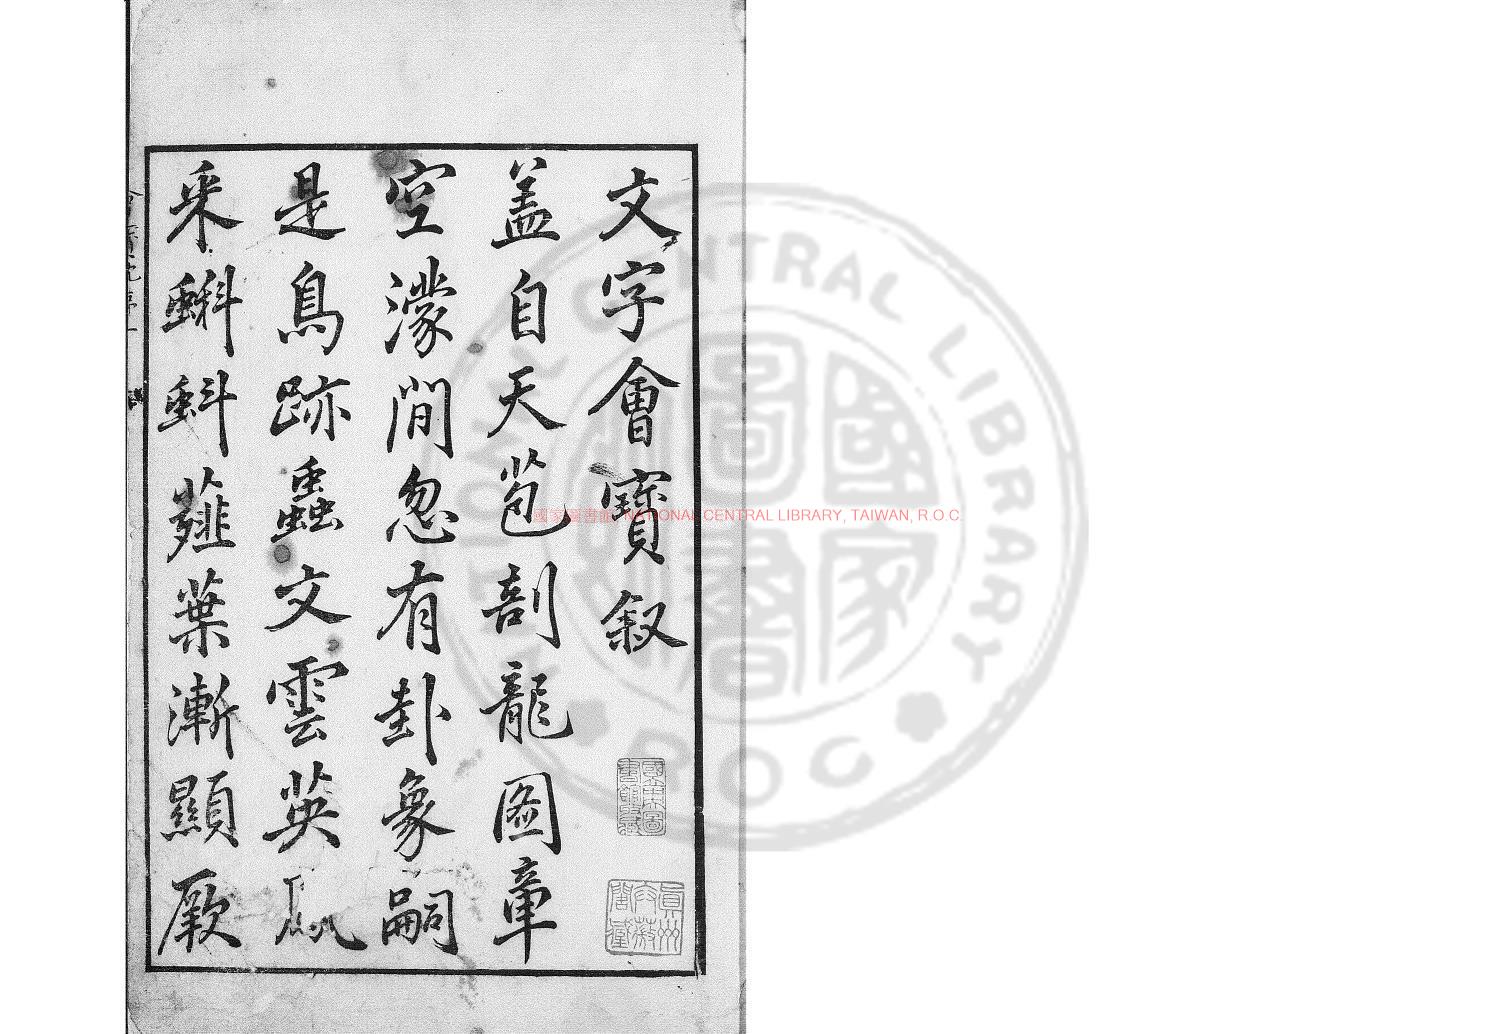 文字會寳叙
蓋自天苞剖龍圖章
空濛間忽有卦象嗣
是鳥跡蟲文雲英鳳
采蝌蚪薤葉漸顯厥
國家圖書館 NATIONAL CENTRAL LIBRARY, TAIWAN, R.O.C.
NATIONAL CENTRAL LIBRARY
ROC
國家圖書館